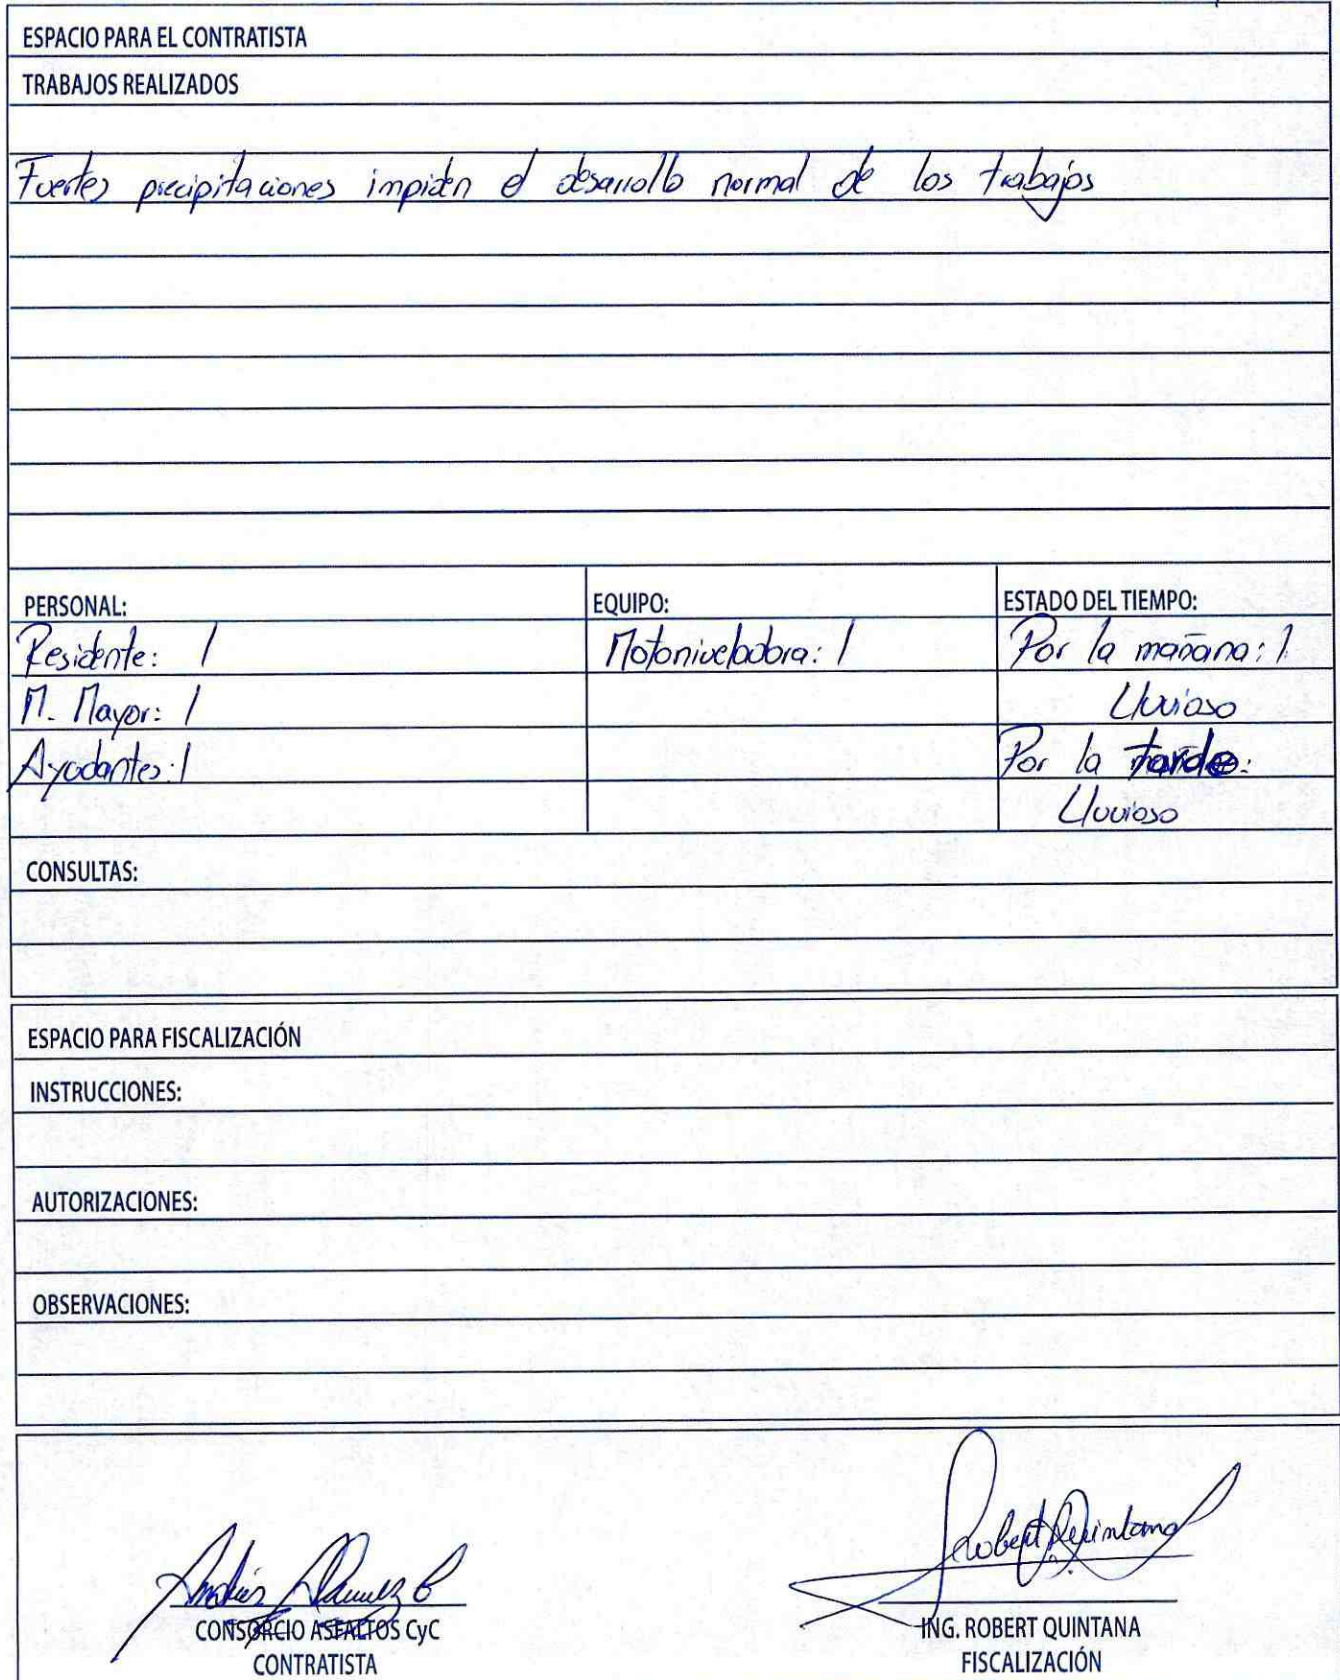 ESPACIO PARA EL CONTRATISTA
TRABAJOS REALIZADOS
Fuertes precipitaciones impiden el desarrollo normal de los trabajos
PERSONAL:
Residente: 1
M. Mayor: 1
Ayudantes: 1
EQUIPO:
Motoniveladora: 1
ESTADO DEL TIEMPO:
Por la mañana: 1
Lluvioso
Por la tarde:
Lluvioso
CONSULTAS:
ESPACIO PARA FISCALIZACIÓN
INSTRUCCIONES:
AUTORIZACIONES:
OBSERVACIONES:
Andrés
CONSORCIO ASFALTOS CyC
CONTRATISTA
Robert Quintana
ING. ROBERT QUINTANA
FISCALIZACIÓN